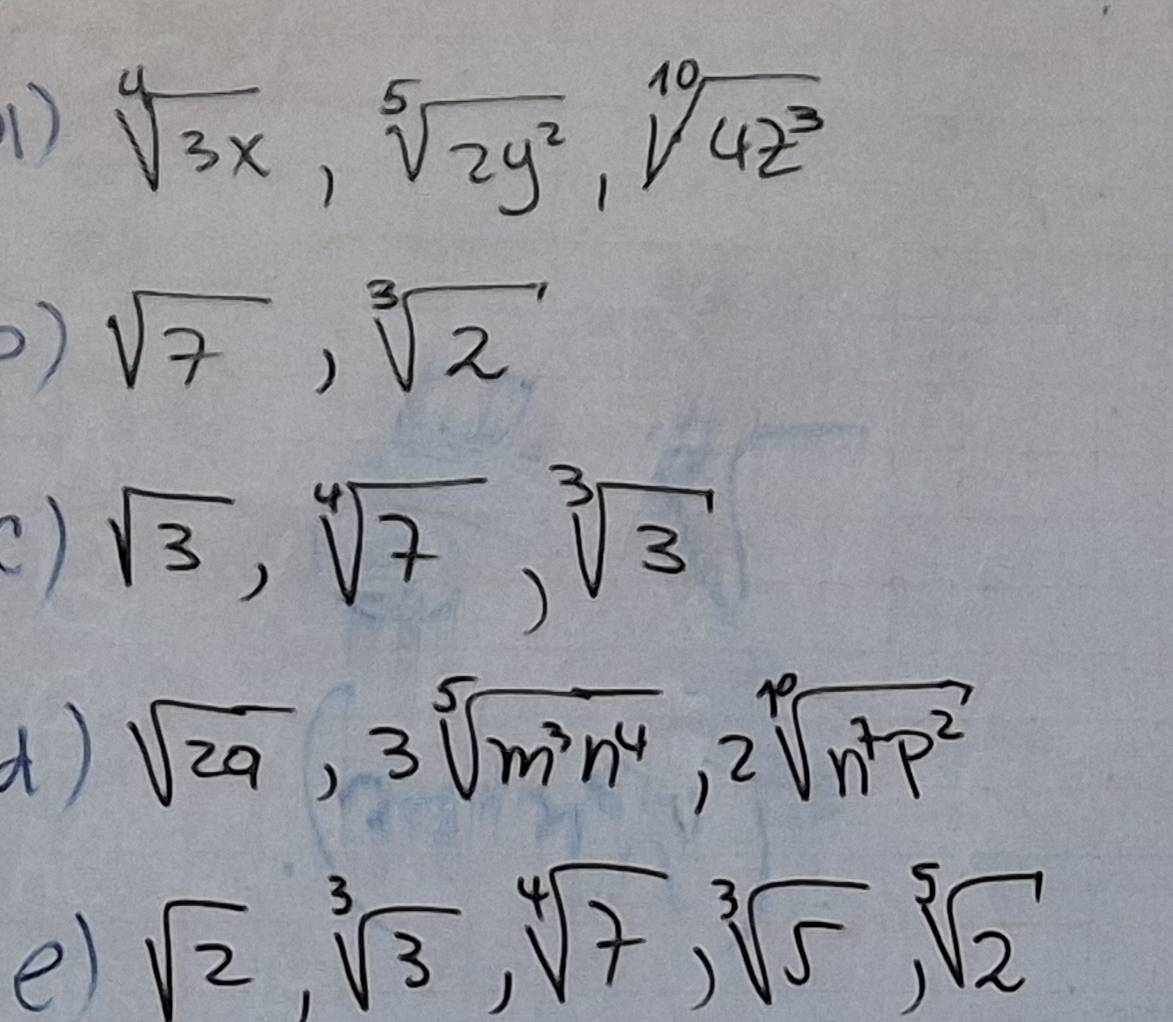 a) ∜3x , ⁵√2y² , ¹⁰√4z³
b) √7 , ∛2
c) √3 , ∜7 , ∛3
d) √2a , 3 ⁵√m³n⁴ , 2 ¹⁰√n⁷p²
e) √2 , ∛3 , ∜7 , ∛5 , ⁵√2